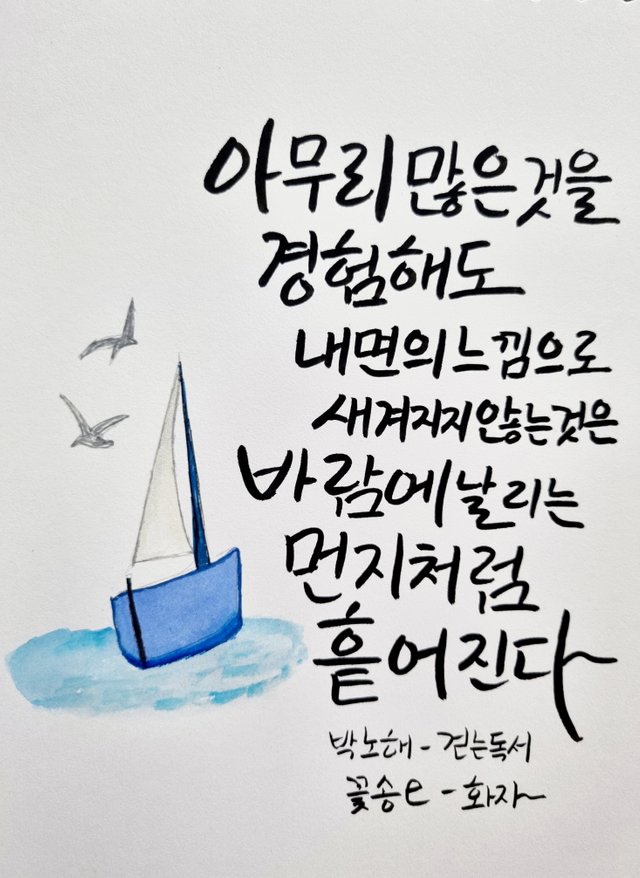 아무리 많은 것을
경험해도
내면의 느낌으로
새겨지지 않는 것은
바람에 날리는
먼지처럼
흩어진다
박노해 - 걷는독서
꽃송e - 화자